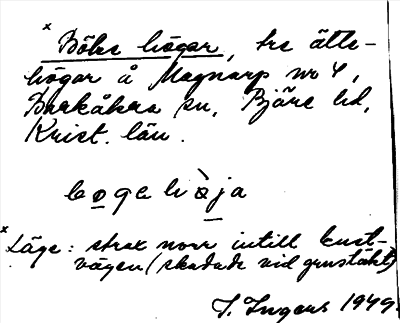 × Böke högar, tre ätte-
högar å Magnarp nr 4,
Barkåkra sn, Bjäre hd,
Krist. län.
× Läge: strax norr intill kust-
vägen (skadade vid grustäkt)
I. Ingers 1949.